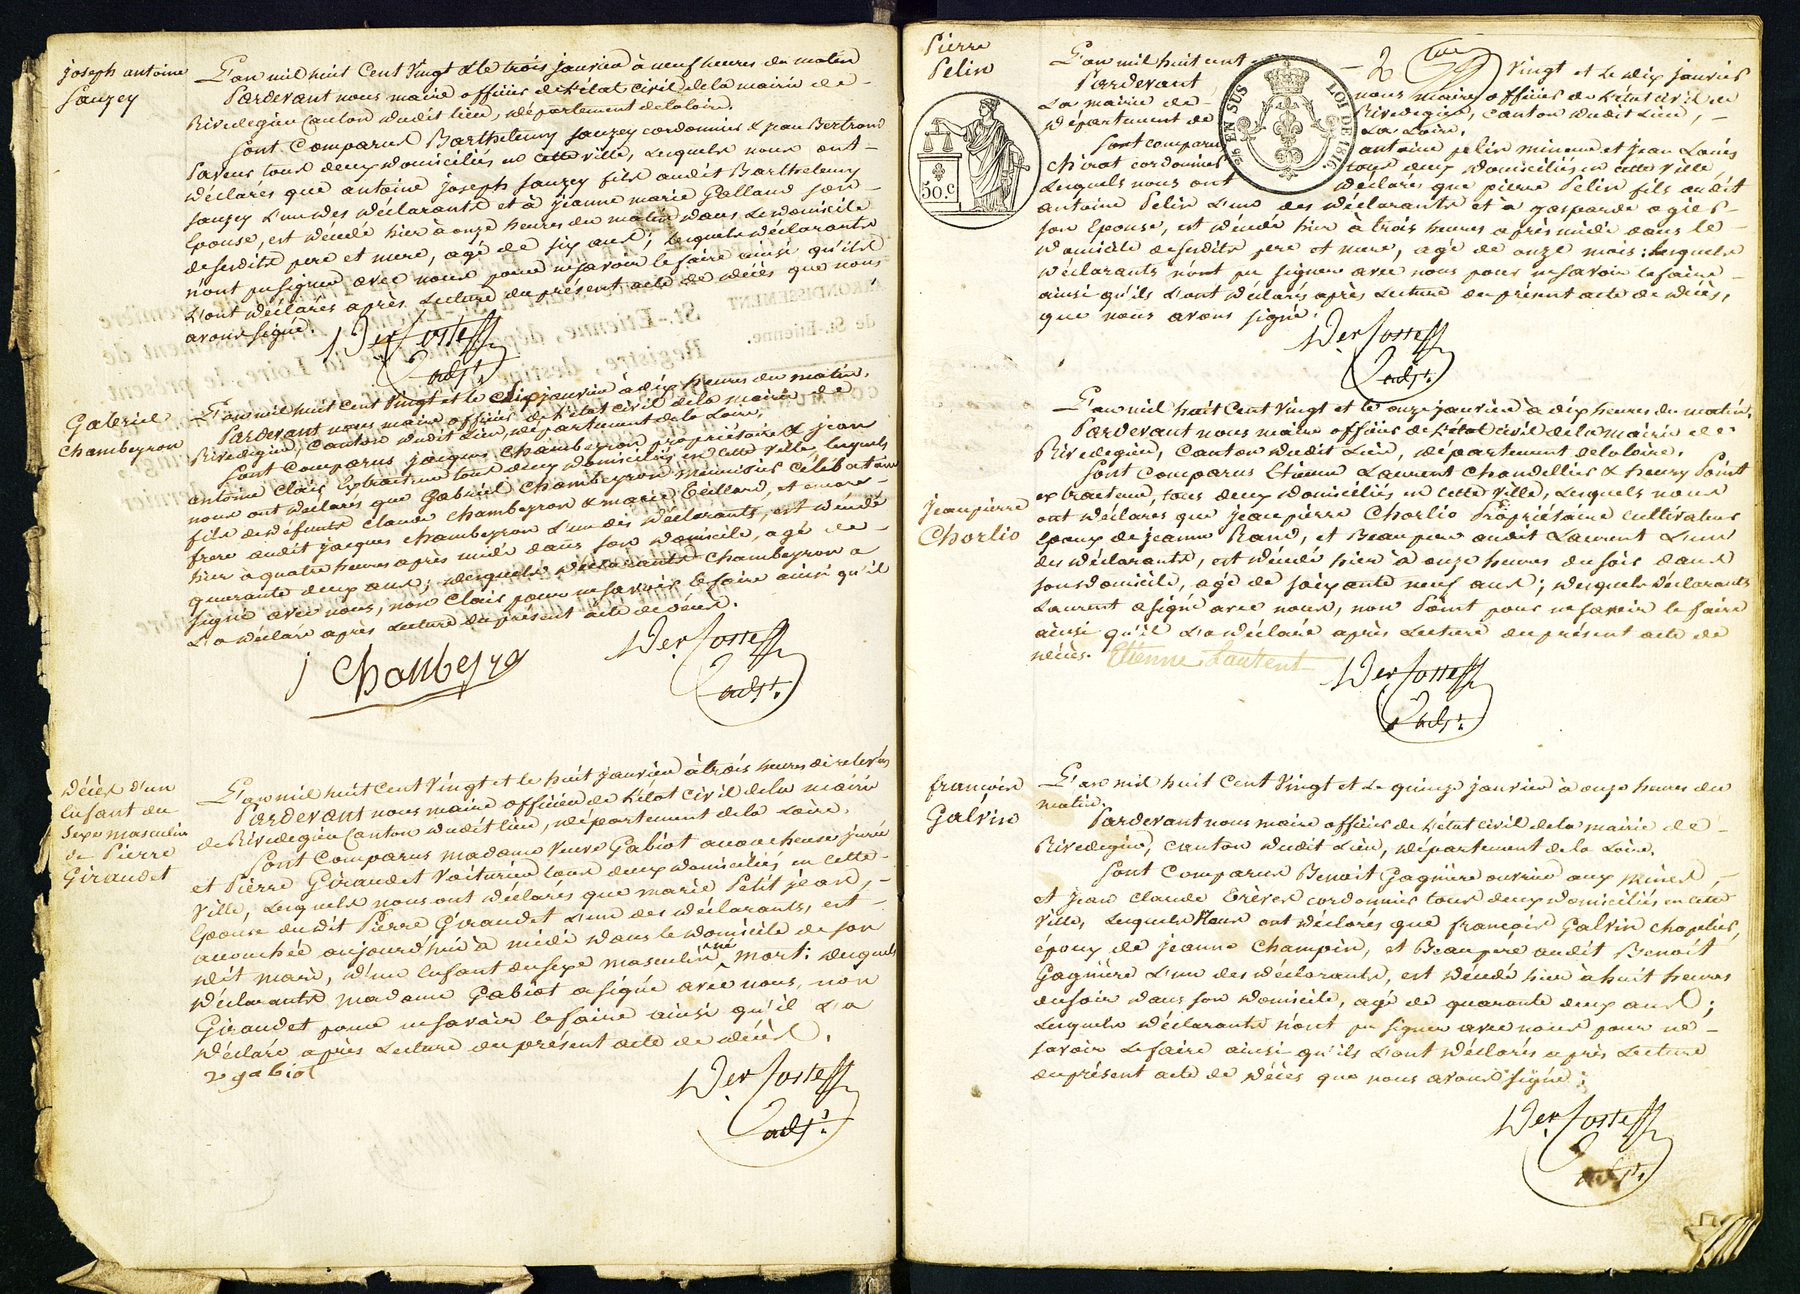 joseph antoine
Sauzey
L'an mil huit Cent Vingt & le trois janvier à neuf heures du matin
Pardevant nous maire officier de l'état civil de la mairie de
Rivedegier Canton dudit lieu, département de la loire.
Sont Comparus Barthelemy Sauzey cordonnier & jean Bertrand
tous deux domiciliés en cette ville, Lesquels nous ont
déclarés que antoine joseph Sauzey fils audit Barthelemy
Sauzey L'un des déclarants et à jeanne marie Galland son
Epouse, est décédé hier à onze heures du matin dans le domicile
de sesdits pere et mere, agé de six ans; lesquels déclarants
nont pu signer avec nous pour ne savoir le faire ainsi qu'ils
L'ont déclarés après Lecture du présent acte de décès que nous
avons signé.
Gabriel
Chambeyron
L'an mil huit cent vingt et le dix janvier à dix heures du matin.
Pardevant nous maire officier de l'état civil de la mairie de
Rivedegier, Canton dudit Lieu, département de la Loire.
Sont Comparus jacques Chambeyron propriétaire & jean
antoine Clair Extracteur tous deux domiciliés en cette ville, lesquels
nous ont déclarés que Gabriel Chambeyron menuisier Célibataire
fils de défunts Claude Chambeyron & marie Teillard, et encore
frere audit jacques Chambeyron L'un des déclarants, est décédé
hier à quatre heures après midi dans son domicile, agé de
quarante deux ans; desquels déclarants Chambeyron a
signé avec nous, non Clair pour ne savoir le faire ainsi qu'il
L'a déclaré après Lecture du présent acte de décès.
j Chambeyro
Décès d'un
Enfant du
Sexe masculin
de Pierre
Giraudet
L'an mil huit cent Vingt et le huit janvier à trois heures de relevés
Pardevant nous maire officier de l'état Civil de la mairie
de Rivedegier Canton dudit lieu, département de la Loire.
Sont Comparus madame Veuve Gabiot accoucheuse jurée
et Pierre Giraudet Voiturier tous deux domiciliés en cette
Ville, Lesquels nous ont déclarés que marie Petit jean,
Epouse dudit Pierre Giraudet L'un des déclarants, est
accouchée aujourd'hui à midi dans le domicile de son
dit mari, d'un Enfant du sexe masculin né mort: desquels
déclarants madame Gabiot a signé avec nous, non
Giraudet pour ne savoir le faire ainsi qu'il L'a
déclaré après Lecture du présent acte de décès.
ve gabiot
Pierre
Pelin
50.c
25 EN SUS LOI DE 1816
L'an mil huit cent Vingt et le dix janvier
Pardevant nous maire officier de l'état civil de
La mairie de Rivedegier, canton dudit Lieu,
département de La Loire.
Sont comparus antoine pelin mineur et jean Louis
Chirat cordonnier tous deux domiciliés en cette ville,
Lesquels nous ont déclarés que pierre Pelin fils audit
antoine Pelin L'un des déclarants et à gasparde
son Epouse, est décédé hier à trois heures après midi dans le
domicile de sesdits pere et mere, agé de onze mois: Lesquels
déclarants nont pu signer avec nous pour ne savoir le faire
ainsi qu'ils L'ont déclarés après Lecture du présent acte de décès,
que nous avons signé.
jean pierre
Chorlio
L'an mil huit Cent Vingt et le onze janvier à dix heures du matin.
Pardevant nous maire officier de l'état civil de la mairie de
Rivedegier, Canton dudit Lieu, département de la loire.
Sont Comparus Etienne Laurent Chandellier & henry Point
extracteur, tous deux domiciliés en cette Ville, Lesquels nous
ont déclarés que jean pierre Chorlio Propriétaire cultivateur
Epoux de jeanne Rand, et Beaupere audit Laurent L'un
des déclarants, est décédé hier à onze heures du soir dans
son domicile, agé de soixante neuf ans; desquels déclarants
Laurent a signé avec nous, non Point pour ne savoir le faire
ainsi qu'il L'a déclaré après Lecture du présent acte de
décès. Etienne Laurent
françois
Galvin
L'an mil huit cent Vingt et Le quinze janvier à onze heures du
matin.
Pardevant nous maire officier de l'état civil de la mairie de
Rivedegier, canton dudit Lieu, département de la Loire.
Sont Comparus Benoit Gagnière ouvrier aux mines,
et jean Claude Trèves cordonnier tous deux domiciliés en cette
Ville, Lesquels Nous ont déclarés que françois Galvin chapelier,
époux de jeanne Champin, et Beaupere audit Benoit
Gagnière L'un des déclarants, est décédé hier à huit heures
du soir dans son domicile, agé de quarante deux ans;
Lesquels déclarants n'ont pu signer avec nous pour ne
savoir Le faire ainsi qu'ils L'ont déclarés après Lecture
du présent acte de décès que nous avons signé: